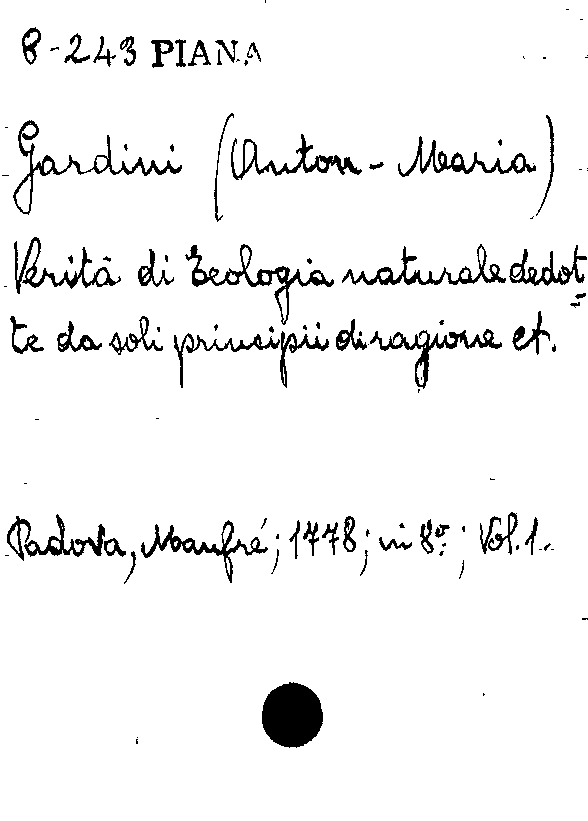 8-243 PIANA
Gardini (Anton-Maria)
Verità di Teologia naturale dedot=
te da soli principii di ragione et.
Padova, Manfré; 1778; in 8º.; Vol. 1.